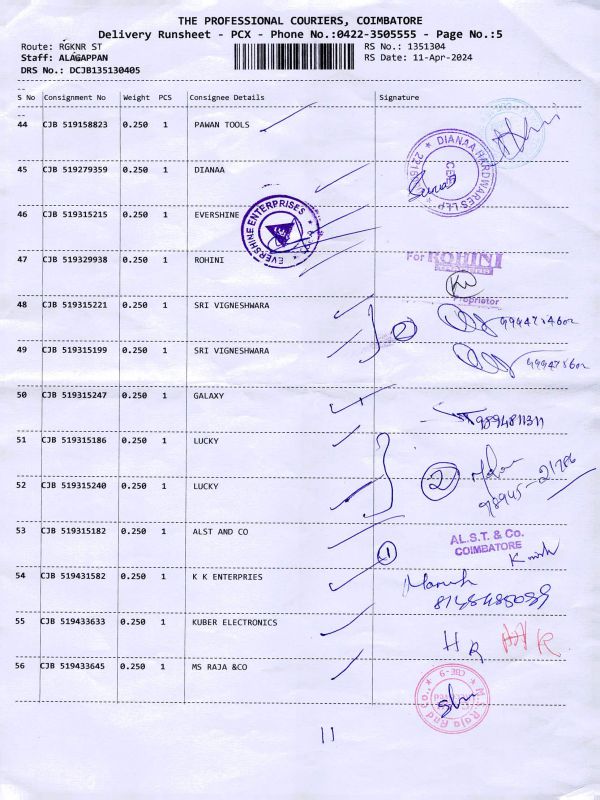 THE PROFESSIONAL COURIERS, COIMBATORE
Delivery Runsheet - PCX - Phone No.:0422-3505555 - Page No.:5
Route: RGKNR ST RS No.: 1351304
Staff: ALAGAPPAN RS Date: 11-Apr-2024
DRS No.: DCJB135130405
S No Consignment No Weight PCS Consignee Details Signature
44 CJB 519158823 0.250 1 PAWAN TOOLS
DIANAA HARDWARES LLP
45 CJB 519279359 0.250 1 DIANAA
46 CJB 519315215 0.250 1 EVERSHINE
EVERSHINE ENTERPRISES
47 CJB 519329938 0.250 1 ROHINI
For ROHINI
Proprietor
48 CJB 519315221 0.250 1 SRI VIGNESHWARA
2
49 CJB 519315199 0.250 1 SRI VIGNESHWARA
50 CJB 519315247 0.250 1 GALAXY
9894811311
51 CJB 519315186 0.250 1 LUCKY
52 CJB 519315240 0.250 1 LUCKY
2
98945-21786
53 CJB 519315182 0.250 1 ALST AND CO
AL.S.T. & Co.
COIMBATORE
1
54 CJB 519431582 0.250 1 K K ENTERPRIES
55 CJB 519433633 0.250 1 KUBER ELECTRONICS
H R
56 CJB 519433645 0.250 1 MS RAJA &CO
CBE-9
11